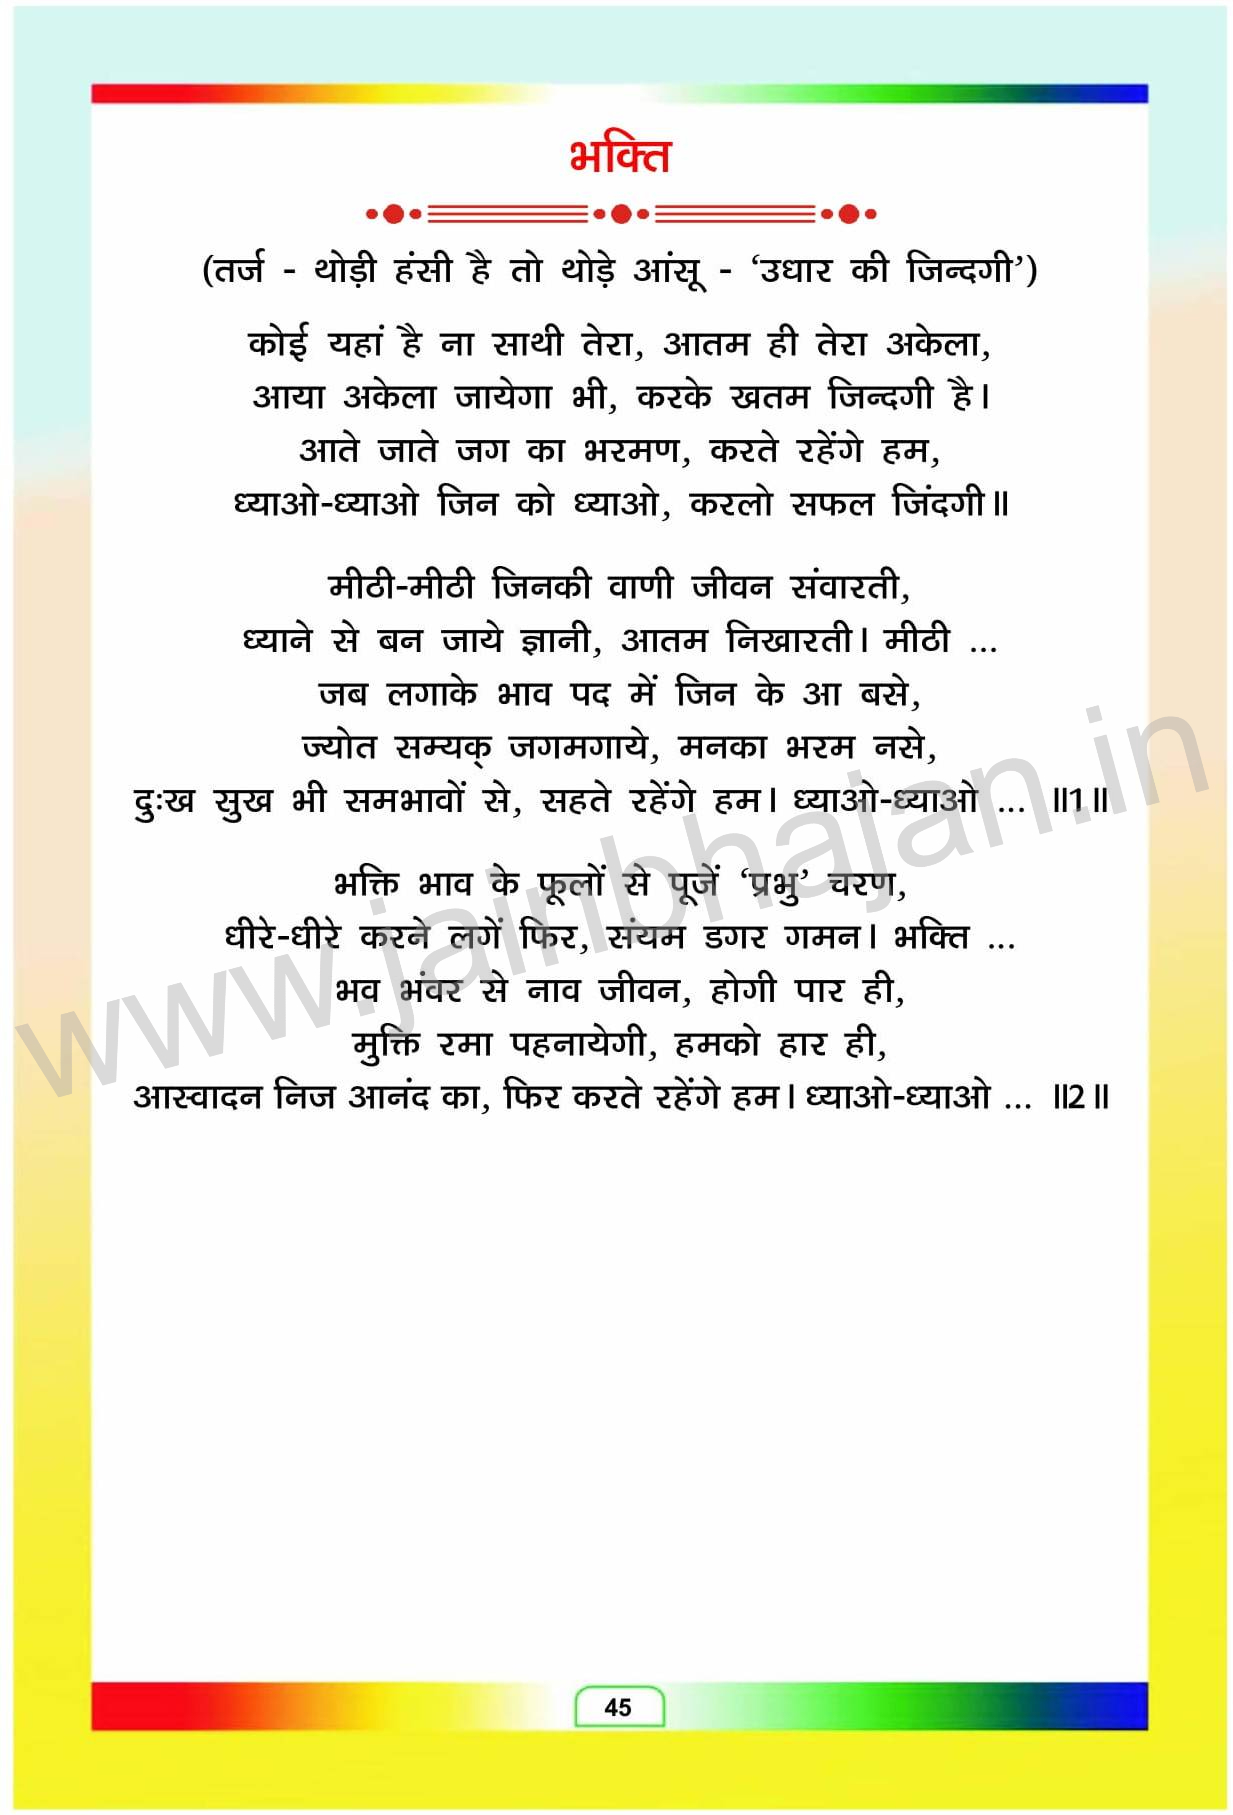 भक्ति
(तर्ज - थोड़ी हंसी है तो थोड़े आंसू - ‘उधार की जिन्दगी’)
कोई यहां है ना साथी तेरा, आतम ही तेरा अकेला,
आया अकेला जायेगा भी, करके खतम जिन्दगी है।
आते जाते जग का भरमण, करते रहेंगे हम,
ध्याओ-ध्याओ जिन को ध्याओ, करलो सफल जिंदगी॥
मीठी-मीठी जिनकी वाणी जीवन संवारती,
ध्याने से बन जाये ज्ञानी, आतम निखारती। मीठी ...
जब लगाके भाव पद में जिन के आ बसे,
ज्योत सम्यक् जगमगाये, मनका भरम नसे,
दुःख सुख भी समभावों से, सहते रहेंगे हम। ध्याओ-ध्याओ ... ॥1॥
भक्ति भाव के फूलों से पूजें ‘प्रभु’ चरण,
धीरे-धीरे करने लगें फिर, संयम डगर गमन। भक्ति ...
भव भंवर से नाव जीवन, होगी पार ही,
मुक्ति रमा पहनायेगी, हमको हार ही,
आस्वादन निज आनंद का, फिर करते रहेंगे हम। ध्याओ-ध्याओ ... ॥2॥
www.jainbhajan.in
45